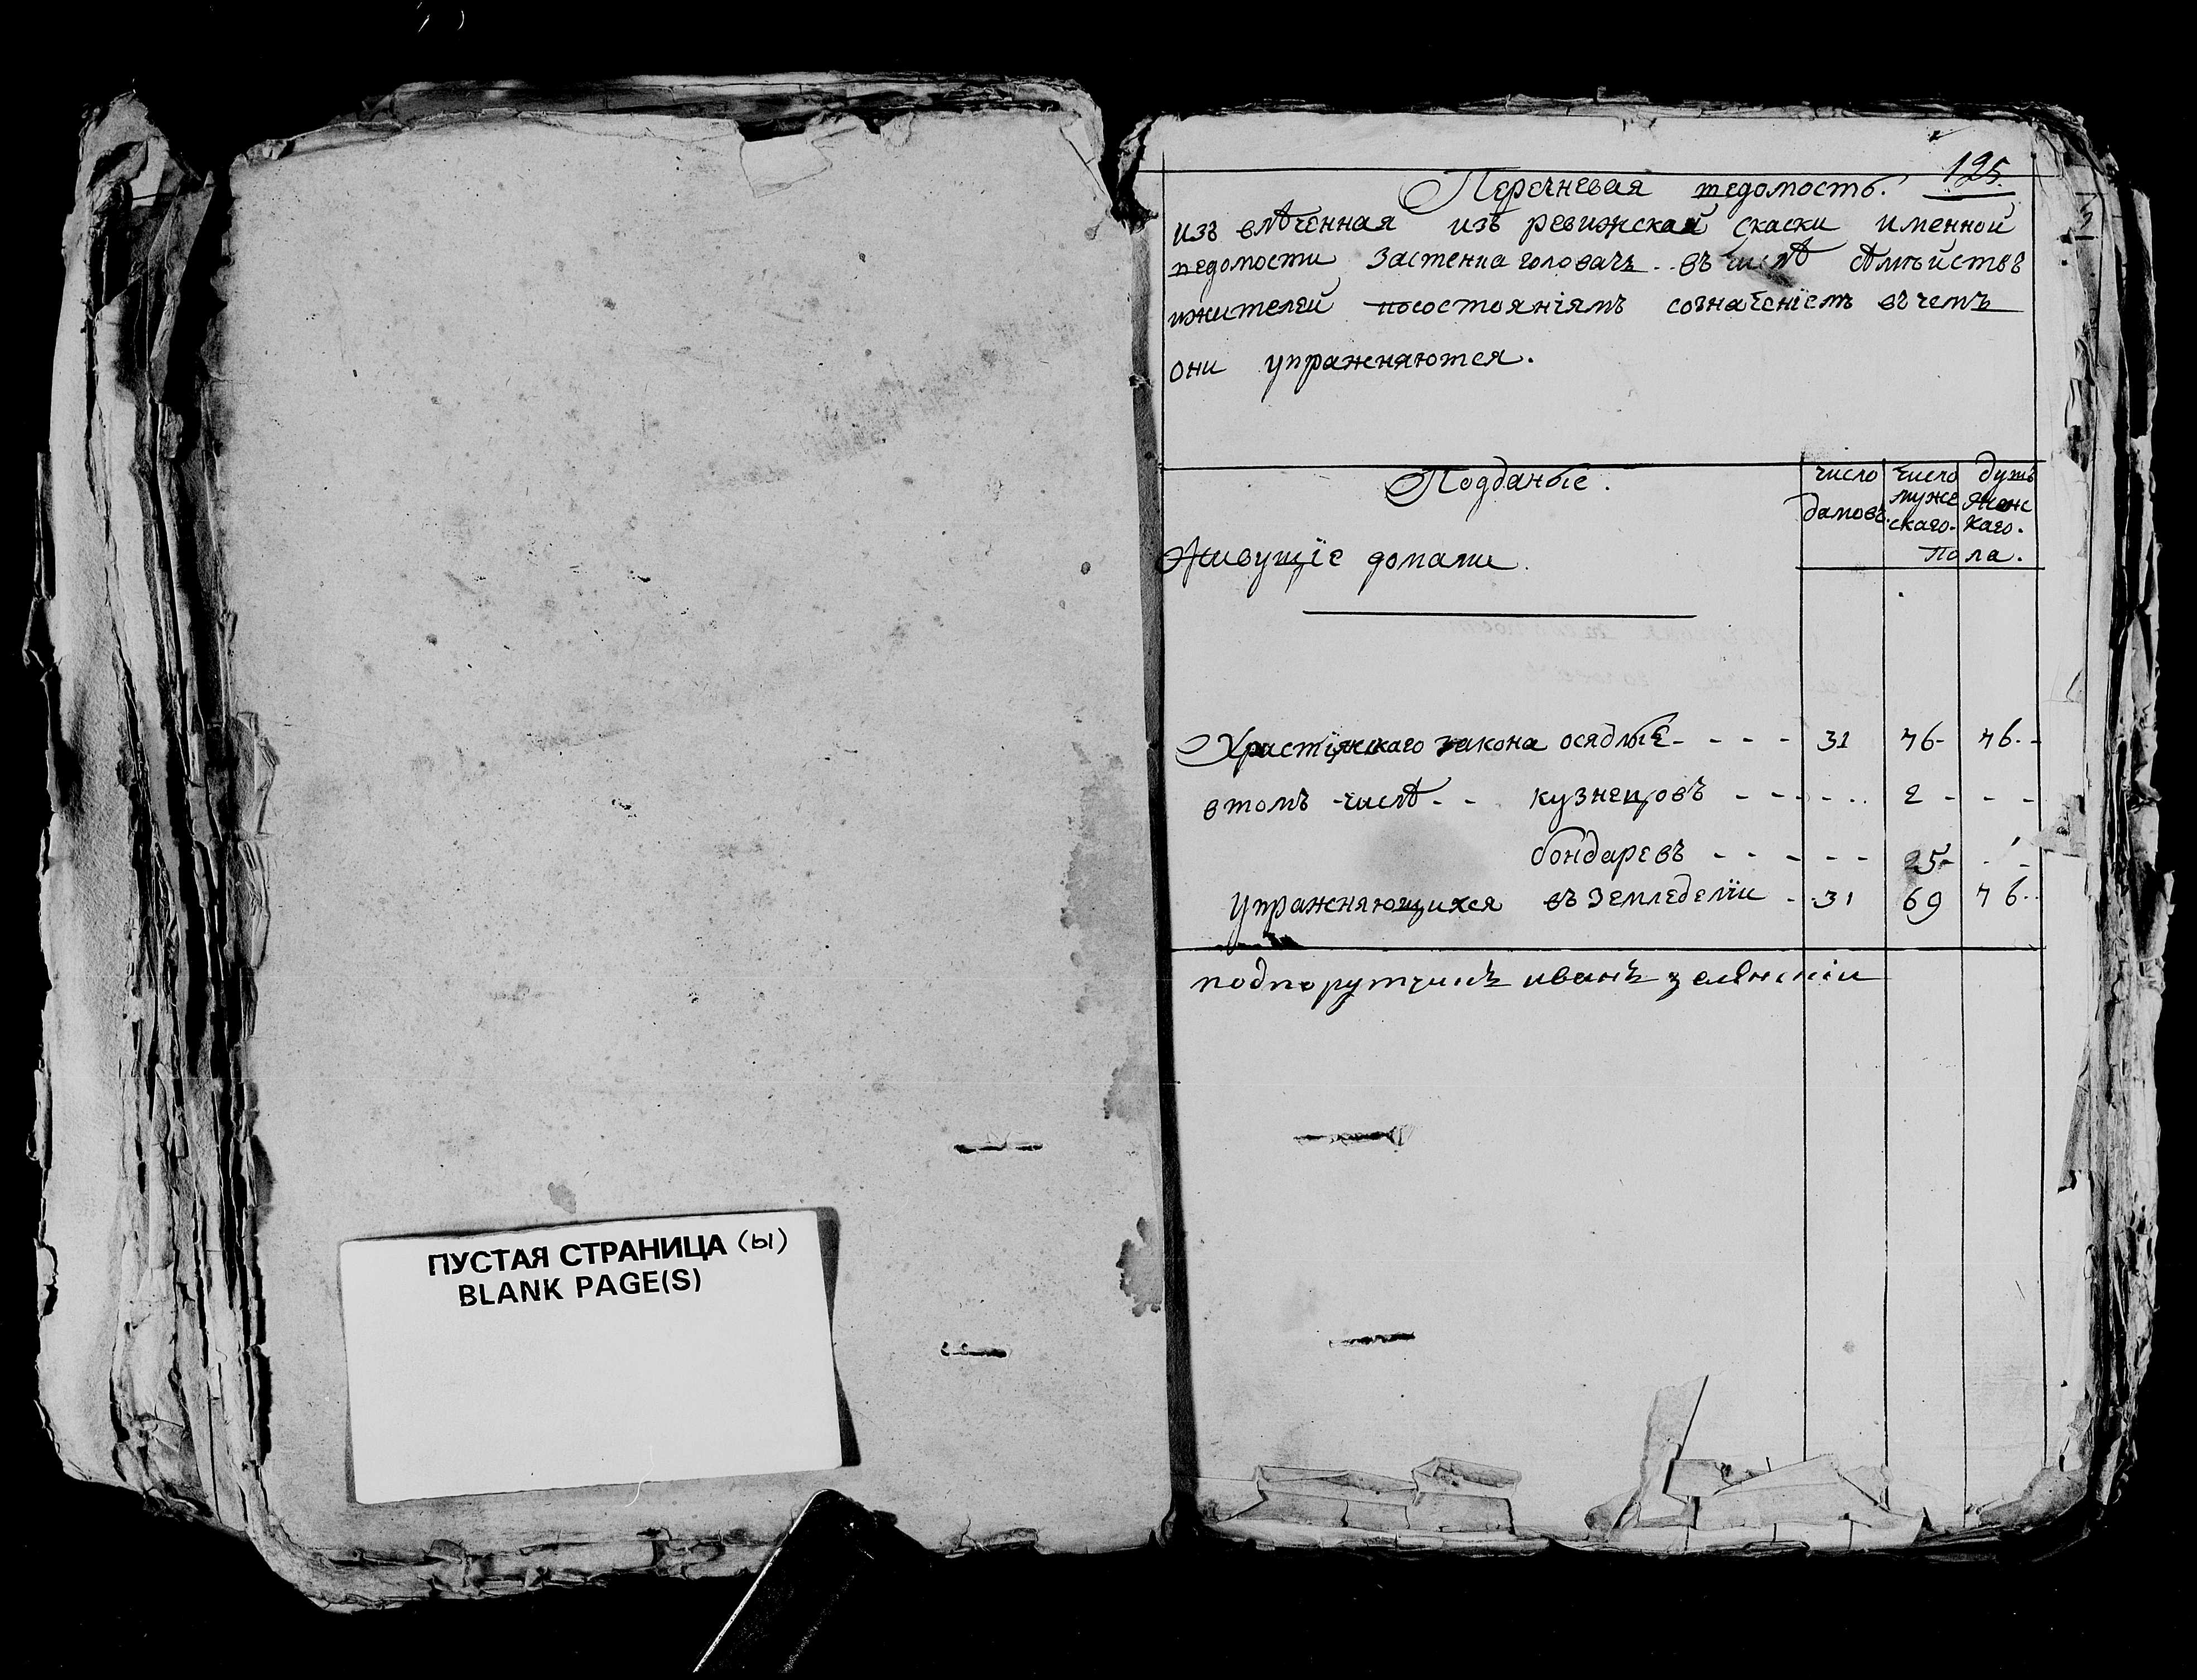 ПУСТАЯ СТРАНИЦА (ы)
BLANK PAGE(S)
125.
Перечневая ведомость.
изъ влѣченная изъ ревижская скаски именной
ведомости застенка головачъ.. въ числѣ сѣмѣйствъ
жителей посостояніямъ созначеніемъ въ чемъ
они упражняются.
Подданые.
число домовъ.
число душъ
мужескаго. женскаго.
пола.
Живущіе домами.
Християнскаго закона осядлые - - - - 31 76- 76- -
втомъ числѣ - - кузнецовъ - - - - - 2 - - -
бондаревъ - - - - - - 5- - -
упражняющихся въ земледелїи - - 31 69 76- -
подпорутчикъ иванъ